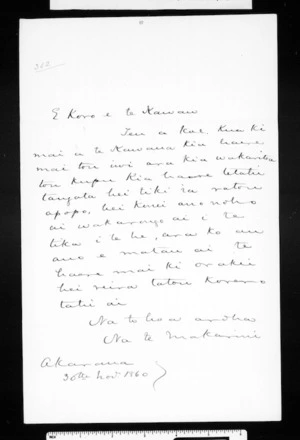 E Koro e te Kawau
Tena Koe. Kua ki
mai a te Kawana kia haere
mai ton iwi ara kia wakarite
ton kupu kia haere tetahi
tangata hei tiki i a ratou
apopo, hei konei ano noho
ai wakarongo ai i te
tika i te he, ara ko au
ano e matau ai te
haere mai ki orakei
hei reira tatou Korero
tahi ai
Na to hoa aroha
Na te Makarini
Akarana
30th Nov. 1860